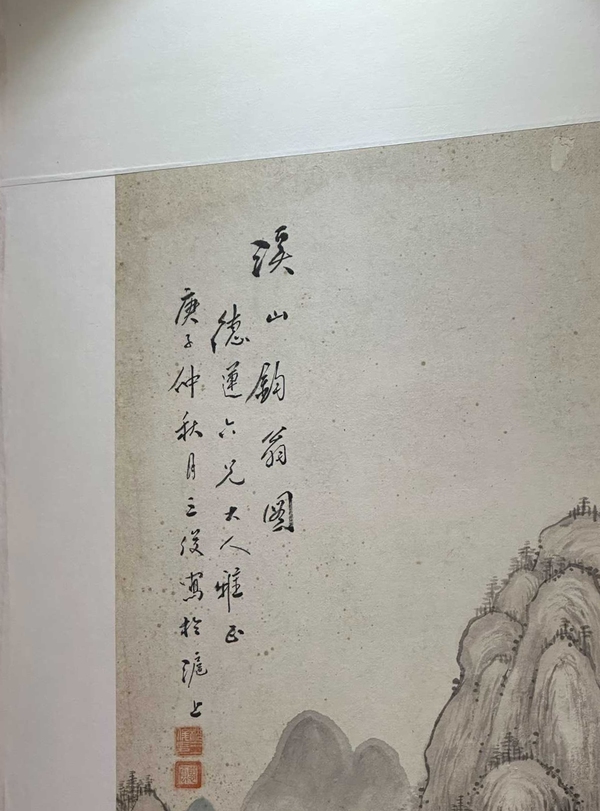 溪山釣翁圖
德運六兄大人雅正
庚子仲秋月三俊寫於滬上